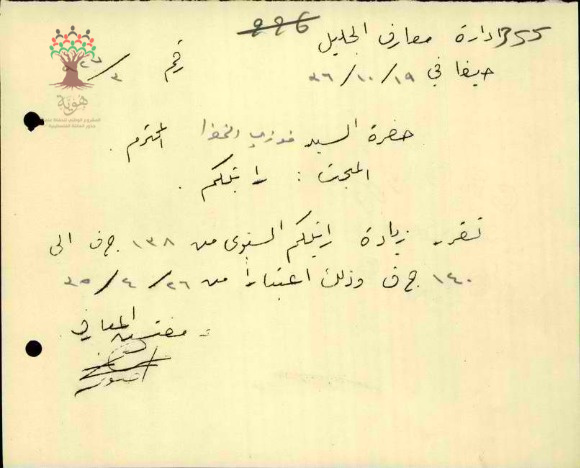 226
355
ادارة معارف الجليل
حيفا في ١٩/١٠/٢٦
رقم
هوية
حضرة السيد فوزي المحترم
المبحث : راتبكم .
تقرر زيادة راتبكم السنوي من ١٣٨ ج ف الى
١٤٠ ج ف وذلك اعتباراً من ٢٦/٤/٢٥
مفتش المعارف